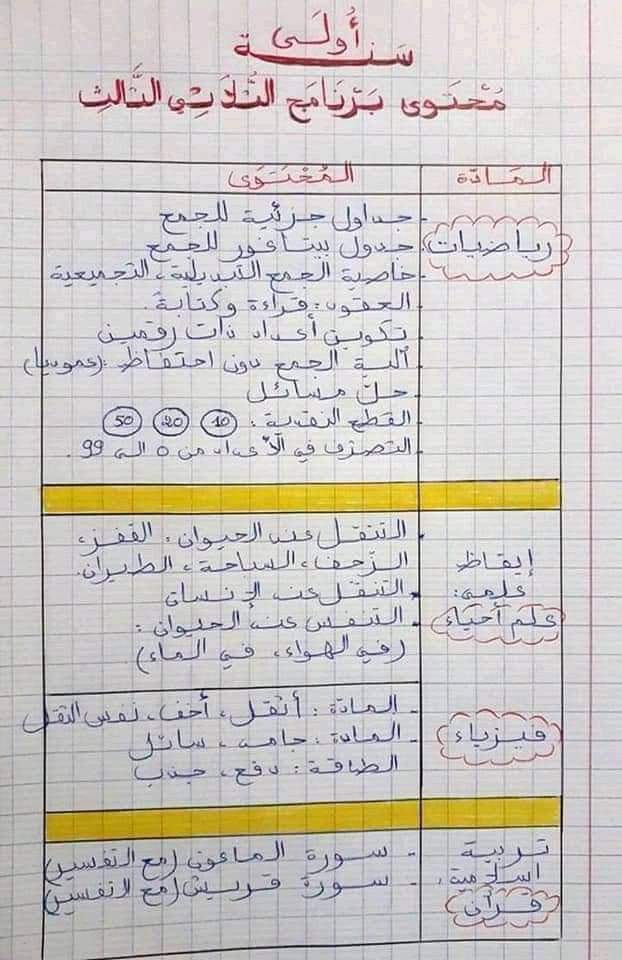 سَنة أُولَى
مُحْتَوى بَرْنَامَج الثُّلَاثِي الثَّالِث
المَادَّة المُحْتَوَى
رياضيات
- جداول جزئية للجمع
جدول بيتاغور للجمع
خاصية الجمع التبديلية، التجميعية
العقود: قراءة وكتابة.
تكوين أعداد ذات رقمين
آلية الجمع دون احتفاظ: (عموديا)
حلّ مسائل
القطع النقدية: 10 20 50
التصرّف في الأعداد من 0 الى 99.
إيقاظ علمي:
علم أحياء
- التنقل عند الحيوان: القفز،
الزّحف، السباحة، الطيران.
- التنقل عند الإنسان
- التنفس عند الحيوان:
(في الهواء، في الماء)
فيزياء
- المادّة: أثقل، أخف، نفس الثقل
- المادة: جامد، سائل
الطاقة: دفع، جذب
تربية
اسلامية:
قرآن
- سورة الماعون (مع التفسير)
- سورة قريش (مع التفسير)